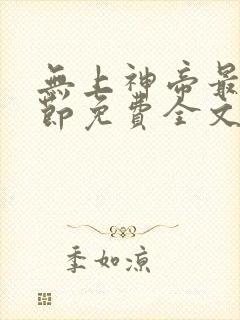 無上神帝最
節免費全文
季如涼